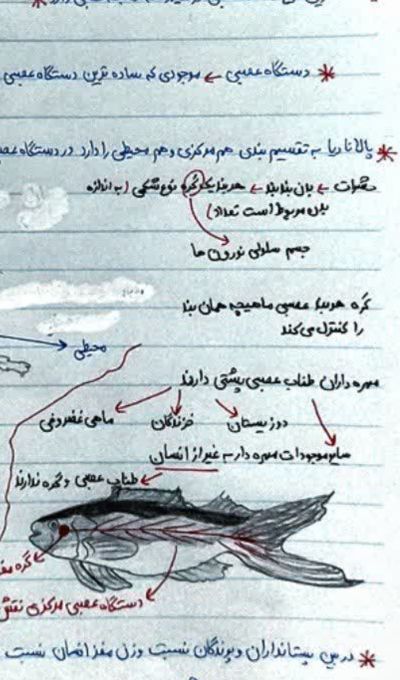 * دستگاه عصبی ← موجودی که ساده ترین دستگاه عصبی
* پلاناریا به تقسیم بندی هم مرکزی و هم محیطی را دارد در دستگاه عصبی
حشرات ← بدن بند بند ← هر بند یک گره نوع شکمی (به اندازه
بدن مربوط است تعداد)
جسم سلولی نورون ها
گره هر بند عصبی ماهیچه همان بند
را کنترل می کند
محیطی
مهره داران طناب عصبی پشتی دارند
ماهی غضروفی خزندگان دوزیستان
سایر موجودات مهره دار به غیر از انسان
طناب عصبی و گره ندارند
گره
دستگاه عصبی مرکزی نقش
* در بین پستانداران و پرندگان نسبت وزن مغز انسان نسبت